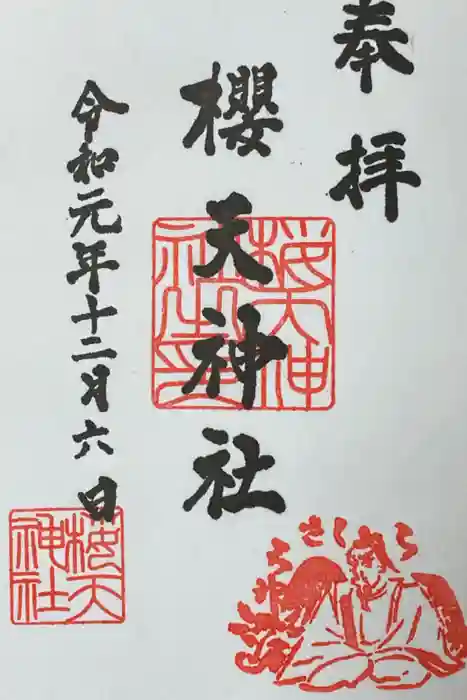 奉拝
櫻天神社
令和元年十二月六日
桜天神
社之印
桜天
神社